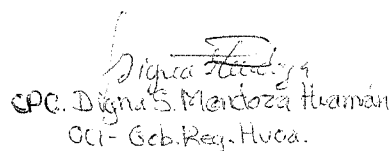 CPC. Digna S. Mendoza Huamán
OCI - Gob. Reg. Hvca.